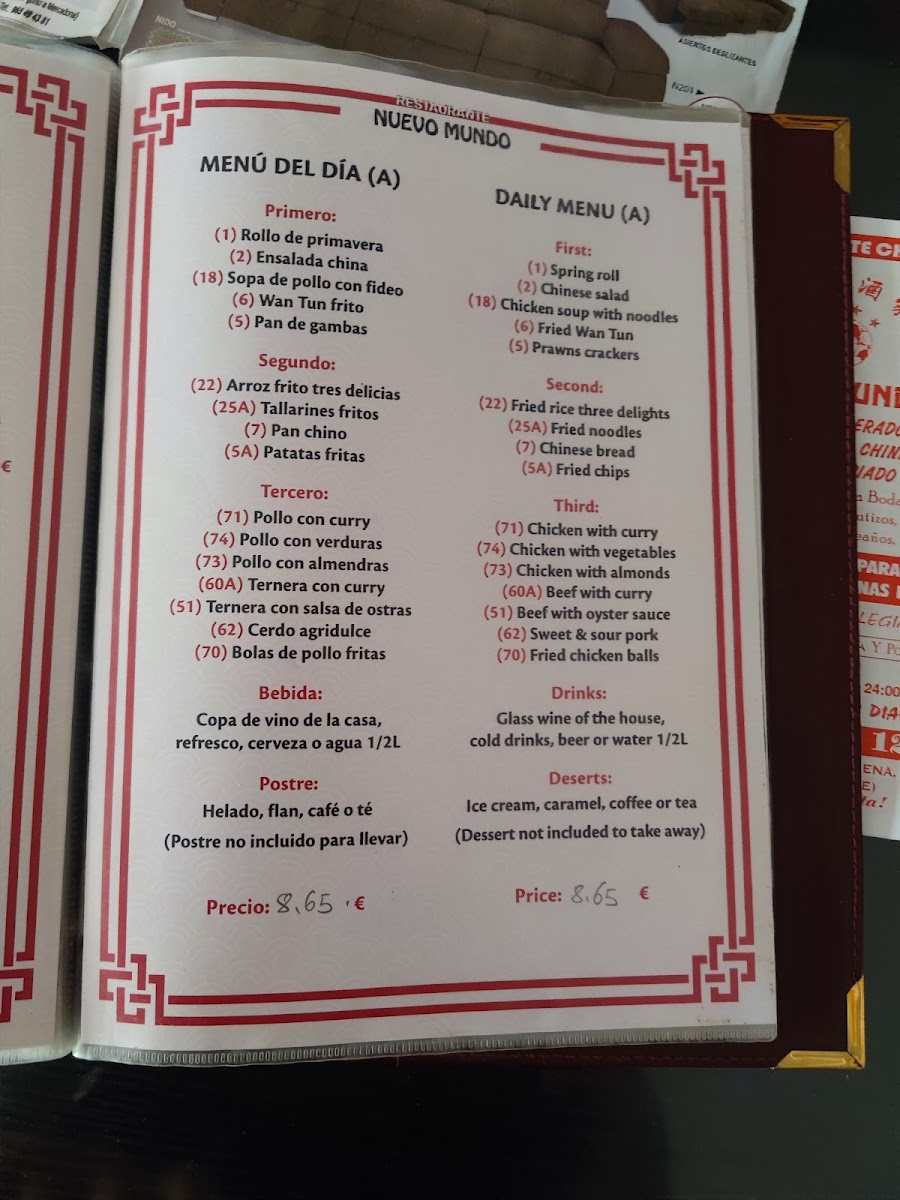 Tel. 965 49 43 81
NIDO
ASIENTOS DESLIZANTES
N201
€
RESTAURANTE
NUEVO MUNDO
MENÚ DEL DÍA (A)
Primero:
(1) Rollo de primavera
(2) Ensalada china
(18) Sopa de pollo con fideo
(6) Wan Tun frito
(5) Pan de gambas
Segundo:
(22) Arroz frito tres delicias
(25A) Tallarines fritos
(7) Pan chino
(5A) Patatas fritas
Tercero:
(71) Pollo con curry
(74) Pollo con verduras
(73) Pollo con almendras
(60A) Ternera con curry
(51) Ternera con salsa de ostras
(62) Cerdo agridulce
(70) Bolas de pollo fritas
Bebida:
Copa de vino de la casa,
refresco, cerveza o agua 1/2L
Postre:
Helado, flan, café o té
(Postre no incluido para llevar)
Precio: 8.65 €
DAILY MENU (A)
First:
(1) Spring roll
(2) Chinese salad
(18) Chicken soup with noodles
(6) Fried Wan Tun
(5) Prawns crackers
Second:
(22) Fried rice three delights
(25A) Fried noodles
(7) Chinese bread
(5A) Fried chips
Third:
(71) Chicken with curry
(74) Chicken with vegetables
(73) Chicken with almonds
(60A) Beef with curry
(51) Beef with oyster sauce
(62) Sweet & sour pork
(70) Fried chicken balls
Drinks:
Glass wine of the house,
cold drinks, beer or water 1/2L
Deserts:
Ice cream, caramel, coffee or tea
(Dessert not included to take away)
Price: 8.65 €
TE CH
酒
UN
ERADO
CHIN
IADO
a Bode
atizos,
eaños,
PARA
NAS
LEGI
A Y Po
24:00
DIA
12
ENA,
E)